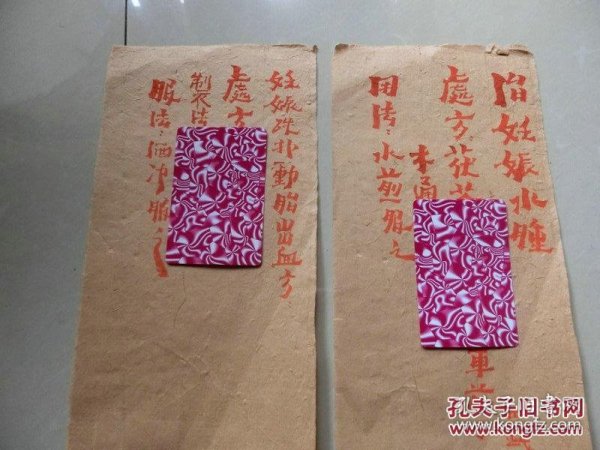 妊娠跌扑動胎出血方
處方
製法
服法:酒冲服之
治妊娠水腫
處方:茯
木通
用法:水煎服之
孔夫子旧书网
www.kongfz.com